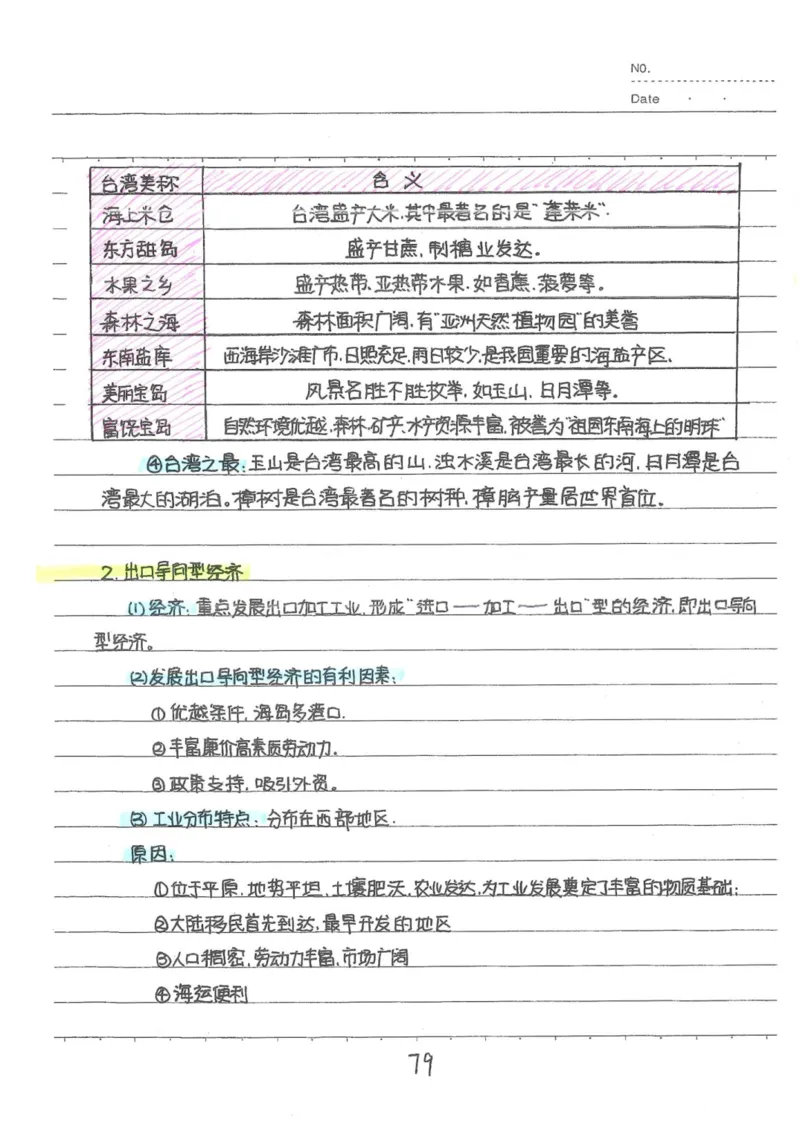 NO.
Date
台湾美称 含义
海上米仓 台湾盛产大米,其中最著名的是"蓬莱米".
东方甜岛 盛产甘蔗,制糖业发达。
水果之乡 盛产热带、亚热带水果,如香蕉、菠萝等。
森林之海 森林面积广阔,有"亚洲天然植物园"的美誉
东南盐库 西海岸沙滩广布,日照充足,雨日较少,是我国重要的海盐产区、
美丽宝岛 风景名胜不胜枚举,如玉山、日月潭等。
富饶宝岛 自然环境优越,森林、矿产、水产资源丰富,被誉为"祖国东南海上的明珠"
④台湾之最:玉山是台湾最高的山.浊水溪是台湾最长的河,日月潭是台
湾最大的湖泊。樟树是台湾最著名的树种,樟脑产量居世界首位.
2.出口导向型经济
(1)经济:重点发展出口加工工业,形成"进口——加工——出口"型的经济,即出口导向
型经济。
(2)发展出口导向型经济的有利因素:
①优越条件,海岛多港口.
②丰富廉价高素质劳动力.
③政策支持,吸引外资。
(3)工业分布特点:分布在西部地区.
原因:
①位于平原,地势平坦,土壤肥沃,农业发达,为工业发展奠定了丰富的物质基础;
②大陆移民首先到达,最早开发的地区
③人口稠密,劳动力丰富,市场广阔
④海运便利
79